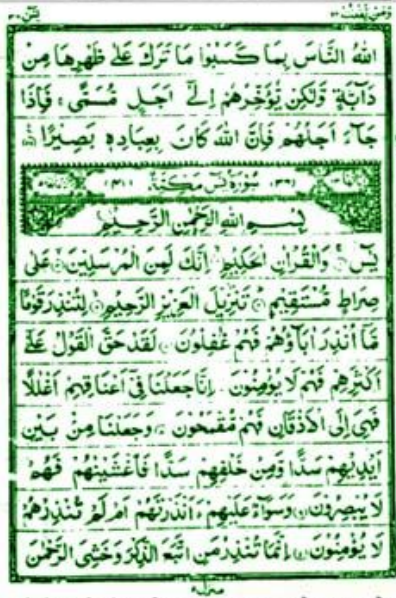 وَمَنْ يَّقْنُتْ ٢٢ يٰسٓ ٣٦
اللّٰهُ النَّاسَ بِمَا كَسَبُوْا مَا تَرَكَ عَلٰى ظَهْرِهَا مِنْ
دَآبَّةٍ وَّلٰكِنْ يُّؤَخِّرُهُمْ اِلٰٓى اَجَلٍ مُّسَمًّى ۚ فَاِذَا
جَآءَ اَجَلُهُمْ فَاِنَّ اللّٰهَ كَانَ بِعِبَادِهٖ بَصِيْرًا
(٣٦) سُوْرَةُ يٰسٓ مَكِّيَّةٌ (٤١)
بِسْمِ اللّٰهِ الرَّحْمٰنِ الرَّحِيْمِ
يٰسٓ ۚ وَالْقُرْاٰنِ الْحَكِيْمِ ۙ اِنَّكَ لَمِنَ الْمُرْسَلِيْنَ ۙ عَلٰى
صِرَاطٍ مُّسْتَقِيْمٍ ؕ تَنْزِيْلَ الْعَزِيْزِ الرَّحِيْمِ ۙ لِتُنْذِرَ قَوْمًا
مَّآ اُنْذِرَ اٰبَآؤُهُمْ فَهُمْ غٰفِلُوْنَ لَقَدْ حَقَّ الْقَوْلُ عَلٰٓى
اَكْثَرِهِمْ فَهُمْ لَا يُؤْمِنُوْنَ اِنَّا جَعَلْنَا فِيْٓ اَعْنَاقِهِمْ اَغْلٰلًا
فَهِيَ اِلَى الْاَذْقَانِ فَهُمْ مُّقْمَحُوْنَ وَجَعَلْنَا مِنْۢ بَيْنِ
اَيْدِيْهِمْ سَدًّا وَّمِنْ خَلْفِهِمْ سَدًّا فَاَغْشَيْنٰهُمْ فَهُمْ
لَا يُبْصِرُوْنَ وَسَوَآءٌ عَلَيْهِمْ ءَاَنْذَرْتَهُمْ اَمْ لَمْ تُنْذِرْهُمْ
لَا يُؤْمِنُوْنَ اِنَّمَا تُنْذِرُ مَنِ اتَّبَعَ الذِّكْرَ وَخَشِيَ الرَّحْمٰنَ